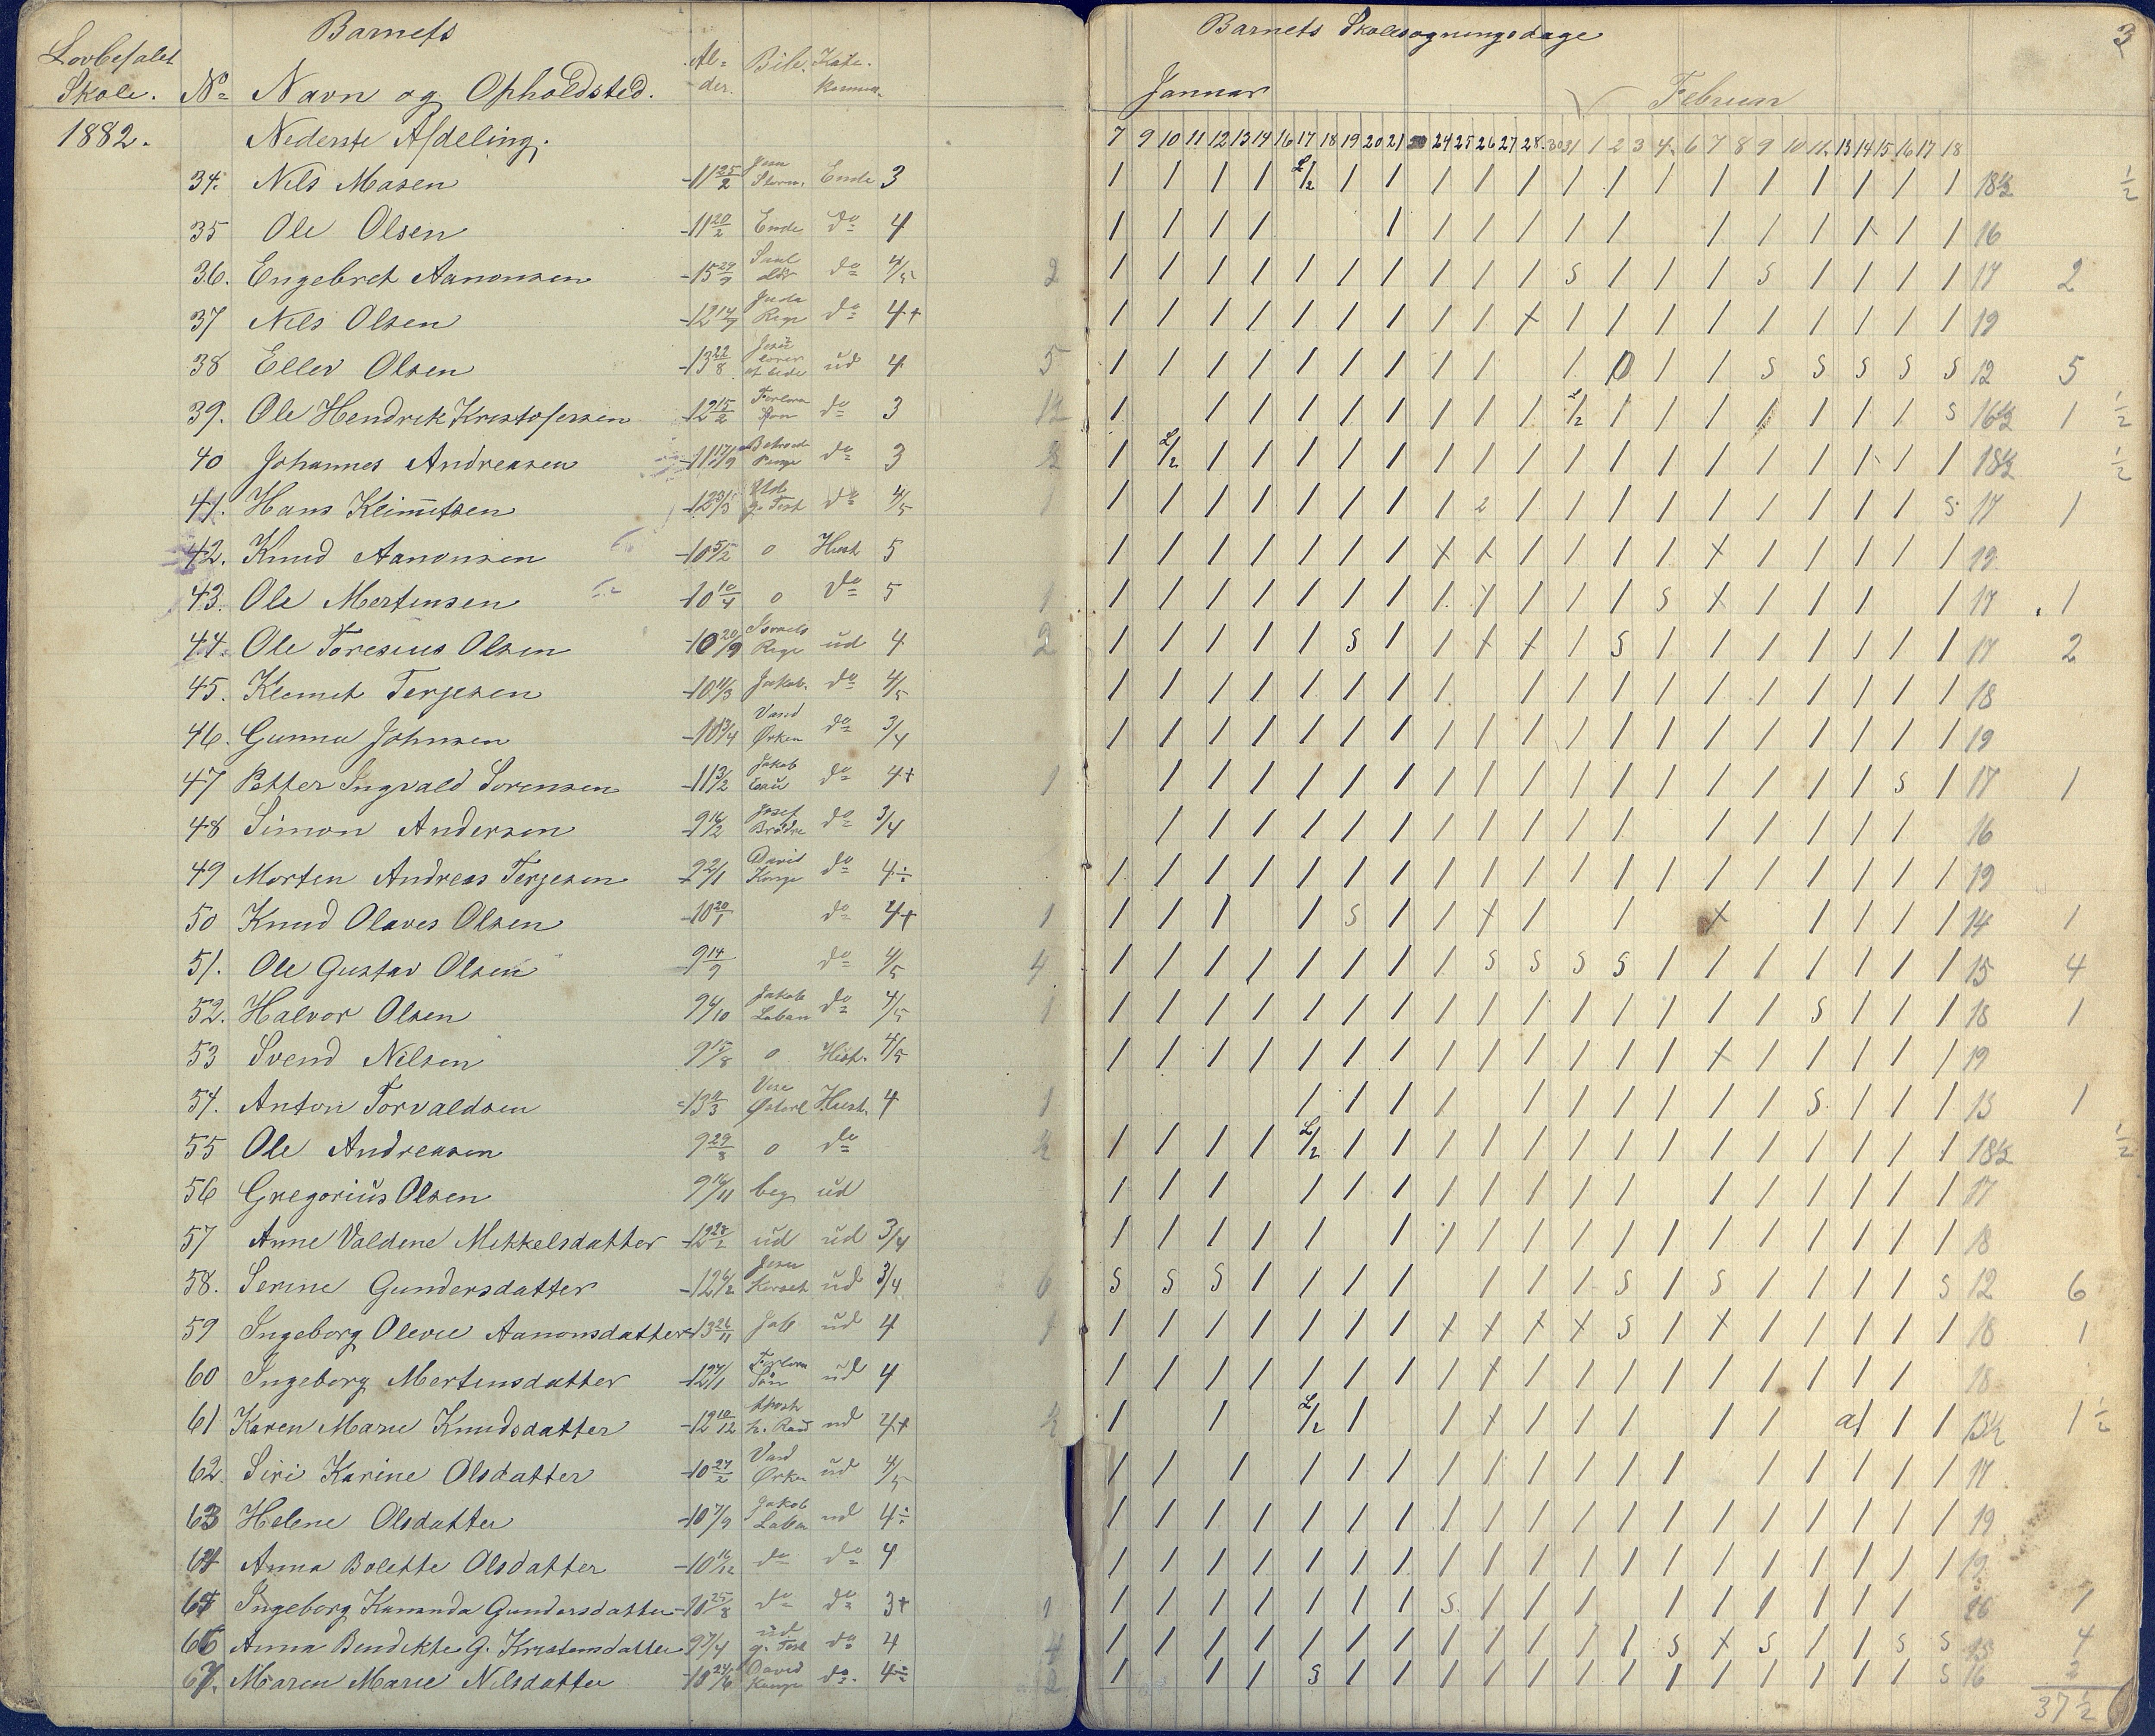 Lovbefalet Skole. Barnets
No Navn og Opholdsted. Al-der. Bib. Kate-kismus.
Barnets Skolesøgningsdage 3
Januar Februar
1882. Nederste Afdeling. 7 9 10 11 12 13 14 16 17 18 19 20 21 24 25 26 27 28 30 31 1 2 3 4 6 7 8 9 10 11 13 14 15 16 17 18
34. Nils Masen -11 25/2 Ende 3 / / / / L/2 / / / / / / / / / / / / / / 18½ ½
35 Ole Olsen -11 20/2 Ende do 4 / / / / / / / / / / / / / / / / 16
36. Engebret Aanonsen -15 29/9 Saul do 4/5 2 / / / / / / / / / S / / / S / / / / 17 2
37 Nils Olsen -12 14/9 Juda Rige do 4+ / / / / / / / / / x / / / / / / / / / 19
38 Ellev Olsen -13 22/8 ud 4 5 / / / / / / / / / / / / S S S S S 12 5
39. Ole Hendrik Kristofersen -12 15/2 Forlorn Søn do 3 / / / / / / / / / L/2 / / / / / / / S 16½ 1 ½
40 Johannes Andreasen -11 17/9 do 3 / L/2 / / / / / / / / / / / / / / / / / 18½ ½
41. Hans Klemetsen do 4/5 1 / / / / / / / / / / / / / / / / / S 17 1
42. Knud Aanonsen -10 5/2 o Hust 5 / / / / / / / / x x / / / / x / / / / / 19
43. Ole Mertensen -10 10/4 o do 5 1 / / / / / / / / / / / / / S x / / / / 17 1
44. Ole Toresius Olsen -10 20/9 Israels Rige ud 4 2 / / / / / S / / x x / S / / / / / / / 17 2
45. Klemet Terjesen Jakob. do 4/5 / / / / / / / / / / / / / / / / / / 18
46. Gunnu Johnsen Vand Ørken do 3/4 / / / / / / / / / / / / / / / / / / / 19
47 Petter Ingvald Sørensen -11 3/2 Jakob Esau do 4+ 1 / / / / / / / / / / / / / / / / S / 17 1
48 Simon Andersen Josef Brødre do 3/4 / / / / / / / / / / / / / / / / 16
49 Morten Andreas Terjesen David Konge do 4÷ / / / / / / / / / / / / / / / / / / / 19
50 Knud Olaves Olsen -10 20/1 do 4+ 1 / / / / S / / x / / x / / / / 14 1
51. Ole Gustav Olsen -9 14/9 do 4/5 4 / / / / / / / / S S S S / / / / / / / 15 4
52. Halvor Olsen Jakob Laban do 4/5 1 / / / / / / / / / / / / / / / S / / / 18 1
53 Svend Nilsen 9 15/8 o Hist. 4/5 / / / / / / / / / / / / / x / / / / / 19
54. Anton Torvaldsen Vise Østerl Hust. 4 1 / / / / / / / / / / / S / / / 13 1
55 Ole Andreasen 9 29/8 o do / / / / L/2 / / / / / / / / / / / / / / 18½ ½
56 Gregorius Olsen beg ud / / / / / / / / / / / / / / / / / 17
57 Anne Valdene Mikkelsdatter ud ud 3/4 / / / / / / / / / / / / / / / / / / 18
58. Serine Gundersdatter Jesu Korset ud 3/4 6 S S S / / / / / / / S / S / / / / S 12 6
59 Ingeborg Olevie Aanonsdatter -13 26/11 Job ud 4 / / / / / / / x x x x S / x / / / / / 18 1
60 Ingeborg Mertensdatter Forlorn Søn ud 4 / / / / / / / / x / / / / / / / / / 18
61 Karen Marie Knudsdatter -12 10/12 ud 4+ / / L/2 / / x / / / / / a/ / / 13½ 1 ½
62. Siri Karine Olsdatter -10 27/2 Vand Ørken ud 4/5 / / / / / / / / / / / / / / / / / 17
63 Helene Olsdatter -10 7/9 Jakob Laban ud 4÷ / / / / / / / / / / / / / / / / / / / 19
64 Anna Bolette Olsdatter -10 16/12 do do 4 / / / / / / / / / / / / / / / / / / / 19
65 Ingeborg Kananda Gundersdatter -10 25/8 do do 3+ 1 / / / / / / / S / / / / / / / / / 16 1
66 Anna Bendikte G. Kristensdatter 9 7/4 do 4 4 / / / / / / / / / / / / S x S / / S S 15 4
67. Maren Marie Nilsdatter -10 24/6 David Konge do 4÷ 2 / / / S / / / / / / / / / / / / / S 16 2
37½